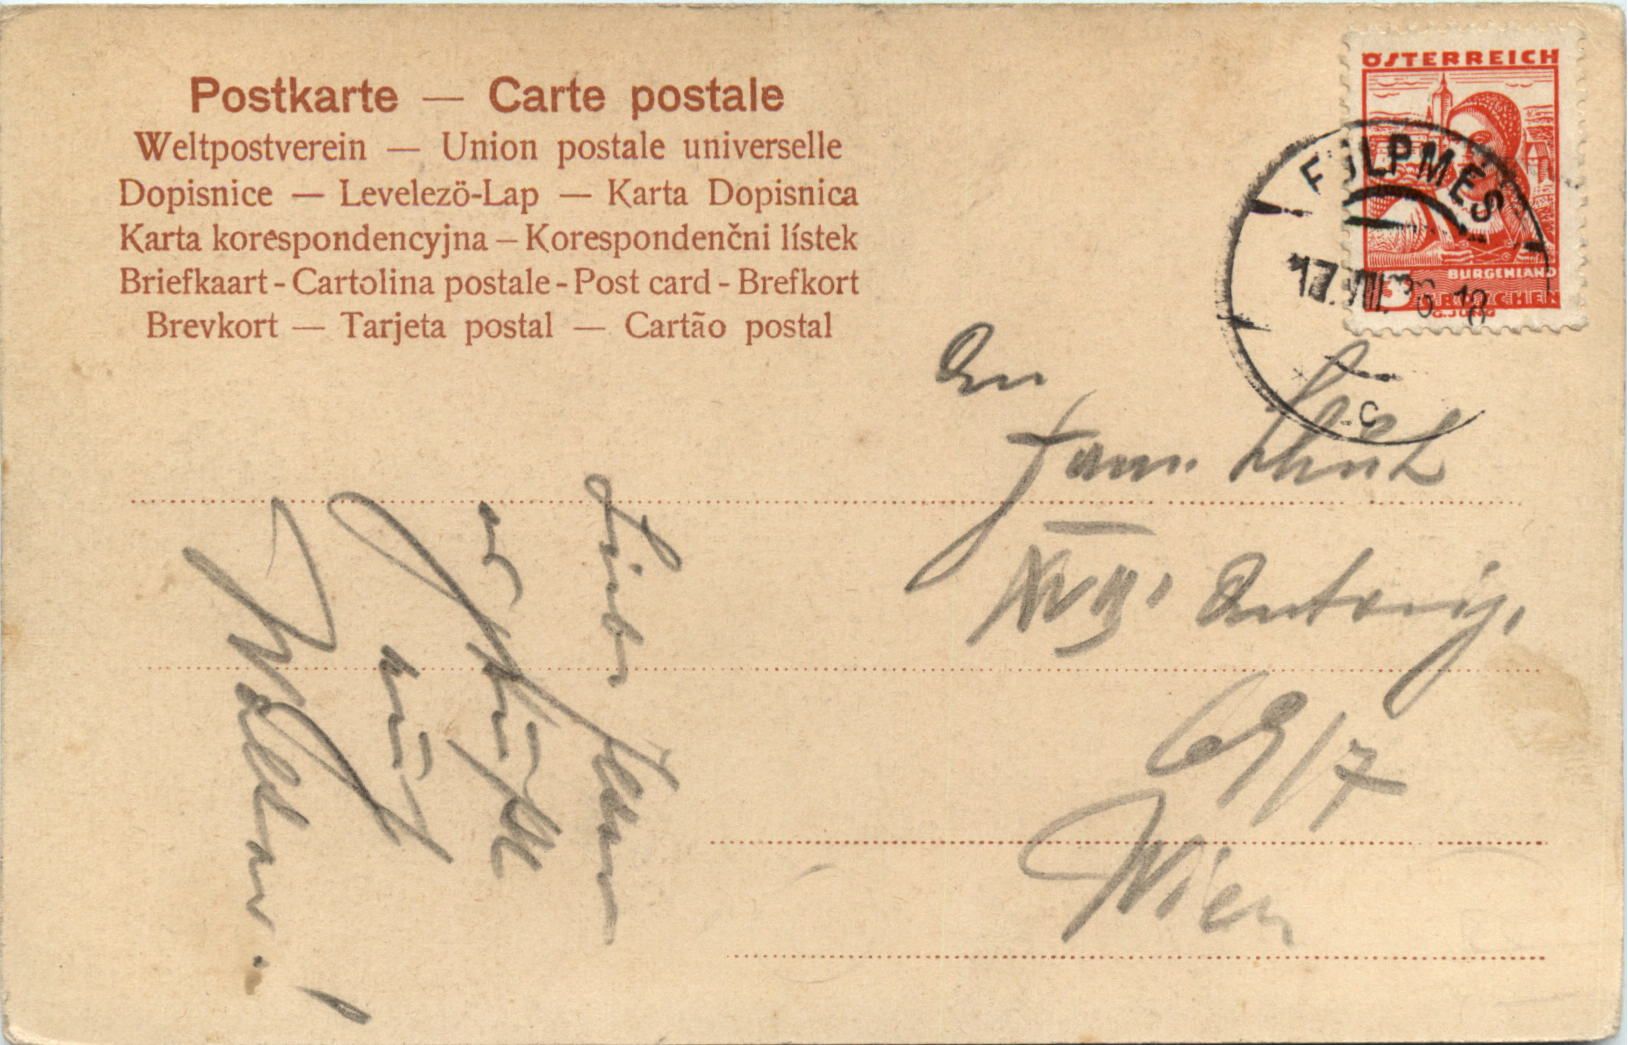 Postkarte — Carte postale
Weltpostverein — Union postale universelle
Dopisnice — Levelezö-Lap — Karta Dopisnica
Karta korespondencyjna – Korespondenčni lístek
Briefkaart - Cartolina postale - Post card - Brefkort
Brevkort — Tarjeta postal — Cartão postal
ÖSTERREICH
BURGENLAND
3 GROSCHEN
G. JUNG
FULPMES
17.VIII.36.18
c
An
Fam.
XVII. Antonig.
69/7
Wien